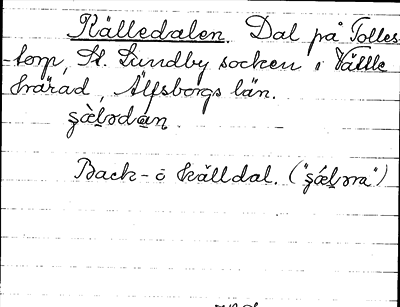 Källedalen. Dal på Tolles
-torp, St. Lundby socken i Vättle
härad, Älfsborgs län.
ʂàl̥ədan.
Back- o källdal. ("ʂǽl̥əra")